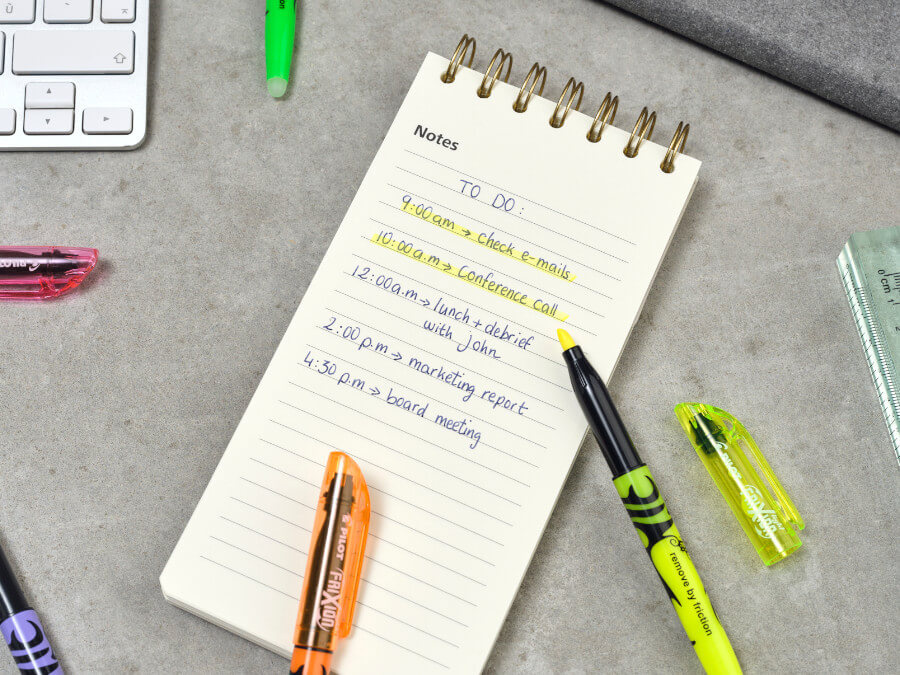 Notes
TO DO:
9:00am → check e-mails
10:00a.m → Conference call
12:00a.m → lunch + debrief
with john
2:00 p.m → marketing report
4:30 p.m → board meeting
PILOT
FRIXION
PILOT
FRIXION
remove by friction
PILOT
0
cm
1
Ü